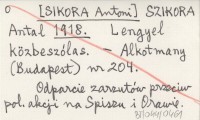 0 [SIKORA Antoni] SZIKORA
Antal 1918. Lengyel
közbeszólas. – Alkotmany
(Budapest) nr 204.
Odparcie zarzutów przeciw
pol. akcji na Spiszu i Orawie.